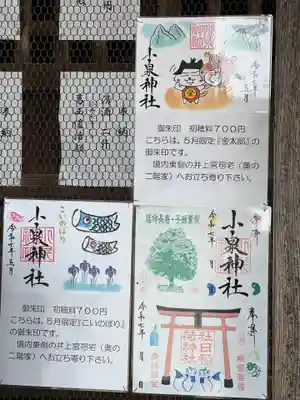 小泉神社
令和七年五月
御朱印　初穂料７００円
こちらは、５月限定『金太郎』の
御朱印です。
境内東側の井上宮司宅（奥の
二階家）へお立ち寄り下さい。
奉納
こいのぼり
小泉神社
令和七年五月
御朱印　初穂料７００円
こちらは、５月限定『こいのぼり』
の御朱印です。
境内東側の井上宮司宅（奥の
二階家）へお立ち寄り下さい。
延命長寿・子孫繁栄
奉拝
小泉神社
令和七年　月　日
奉拝
社日稲
荷神社
令和七年　月　日